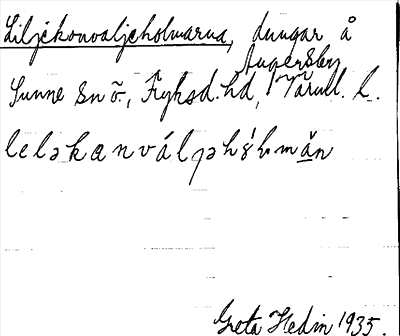 Liljekonvaljeholmarna, dungar å
Ingersby
Sunne sn ö., Fryksd. hd, Värml. l.
leləkanválјəhólmăn
Greta Hedin 1935.